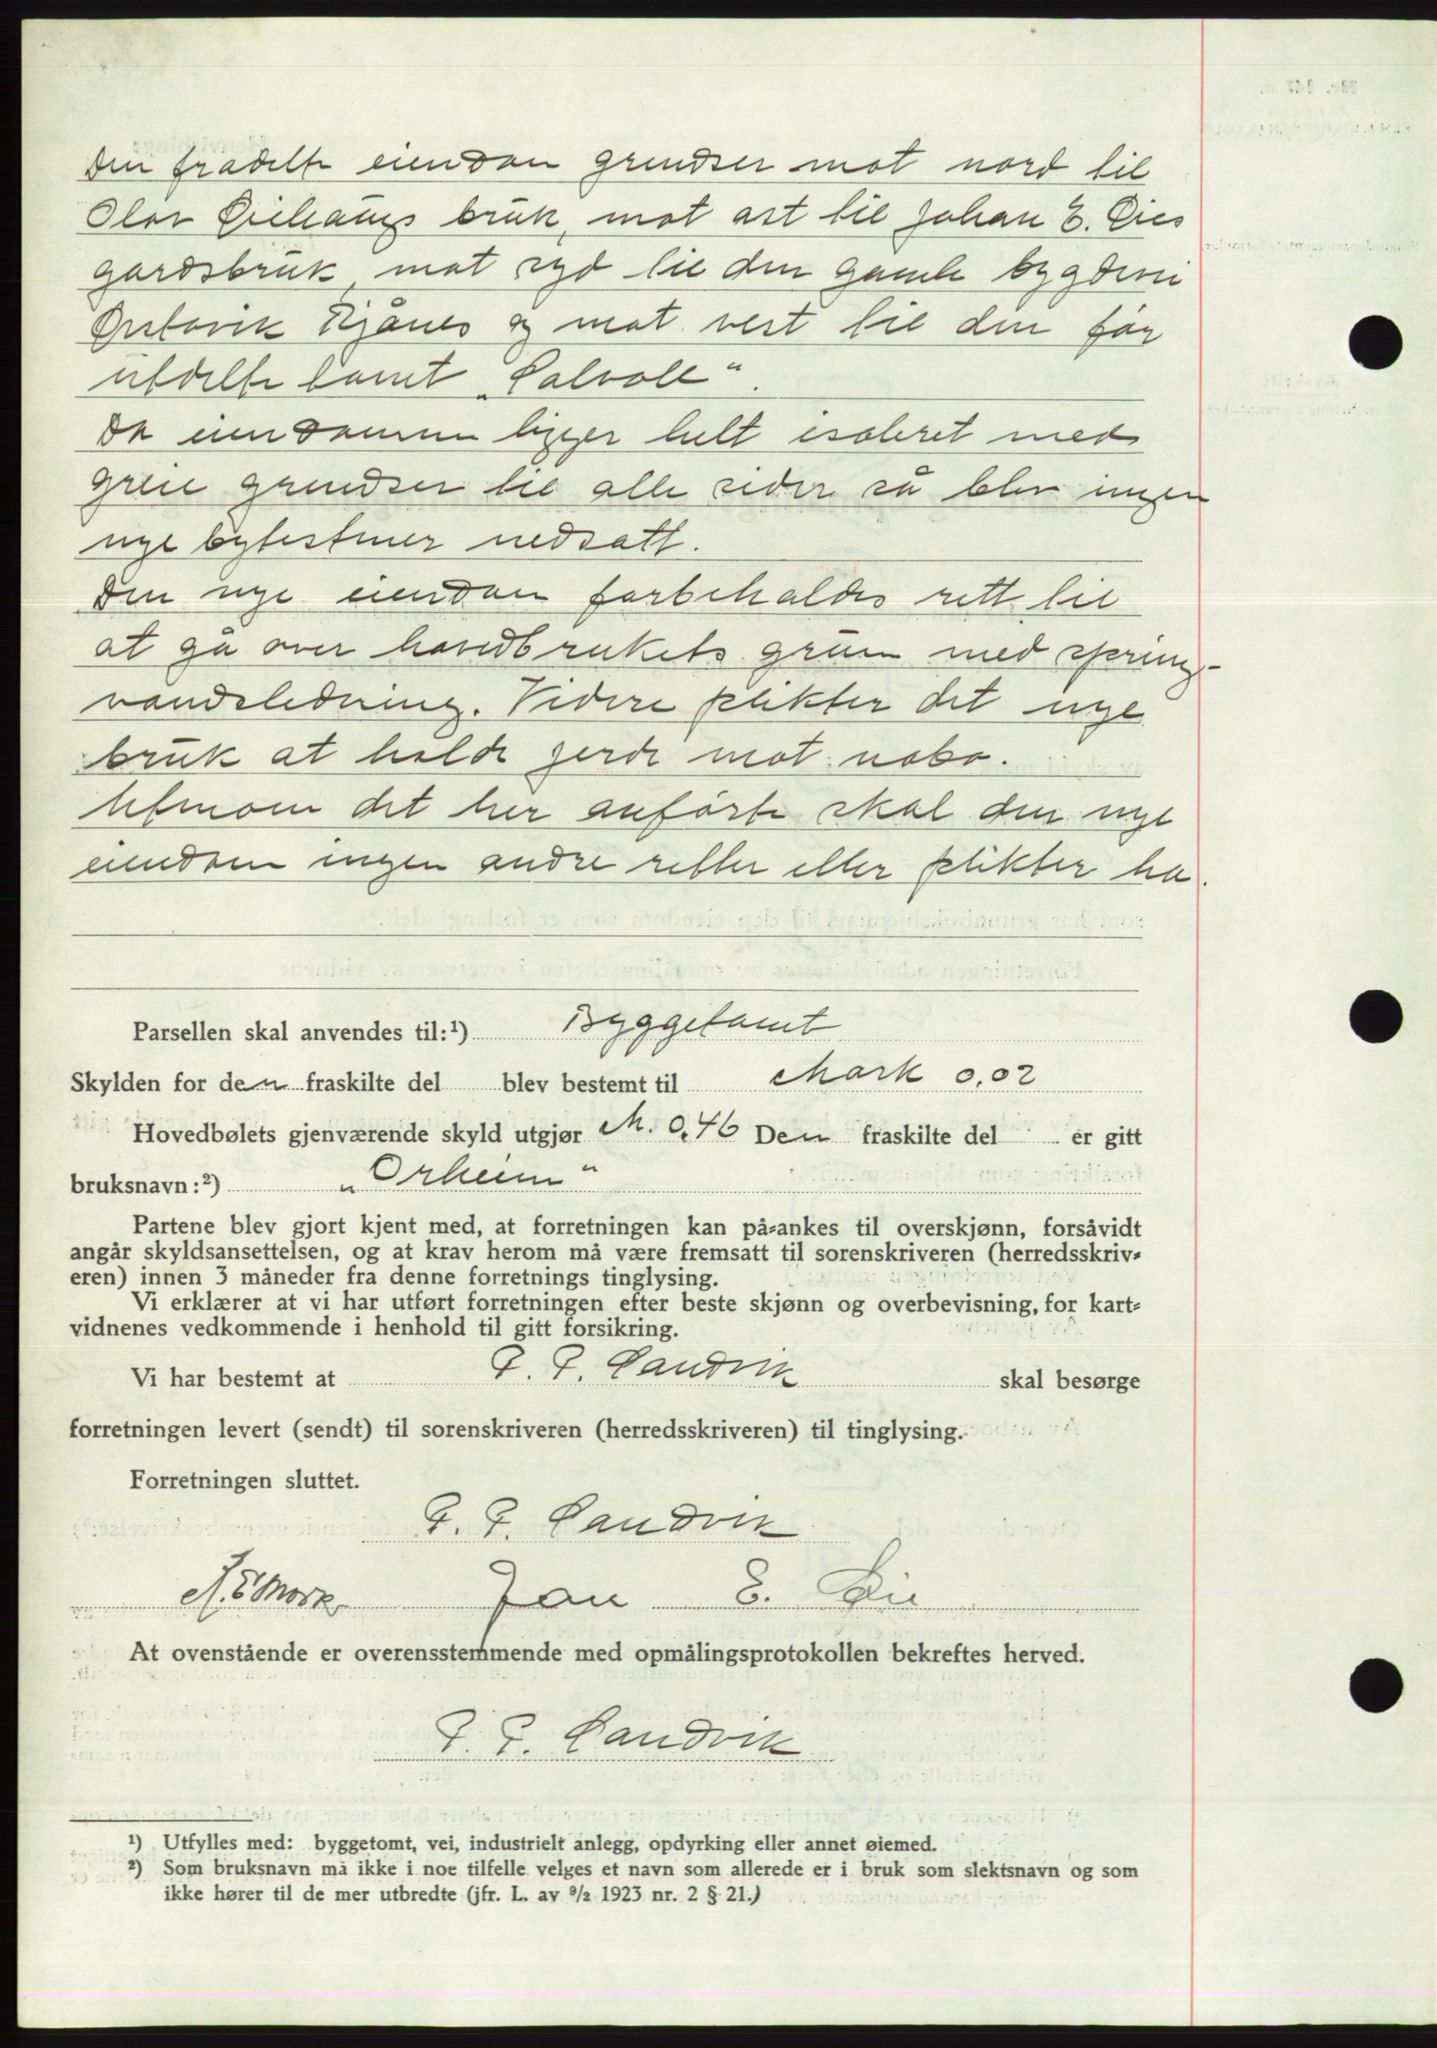 Den fradelte eiendom grendser mot nord til
Olav Øiehaugs bruk, mot øst til Johan E. Øies
gardsbruk mot syd til den gamle bygdevei
Ørstavik Kjånes og mot vest til den før
utdelte tomt „Solvoll“.
Da eiendommen ligger helt isoleret med
greie grendser til alle sider så blev ingen
nye bytestener nedsatt.
Den nye eiendom forbeholdes rett til
at gå over hovedbrukets grunn med spring-
vandsledning. Videre plikter det nye
bruk at holde jerde mot nabo.
Utenom det her anførte skal den nye
eiendom ingen andre retter eller plikter ha.
Parsellen skal anvendes til:¹) Byggetomt
Skylden for den fraskilte del blev bestemt til Mark 0,02
Hovedbølets gjenværende skyld utgjør M. 0,46 Den fraskilte del er gitt
bruksnavn:²) „Orheim“
Partene blev gjort kjent med, at forretningen kan på-ankes til overskjønn, forsåvidt
angår skyldsansettelsen, og at krav herom må være fremsatt til sorenskriveren (herredsskriv-
eren) innen 3 måneder fra denne forretnings tinglysing.
Vi erklærer at vi har utført forretningen efter beste skjønn og overbevisning, for kart-
vidnenes vedkommende i henhold til gitt forsikring.
Vi har bestemt at P. P. Sandvik skal besørge
forretningen levert (sendt) til sorenskriveren (herredsskriveren) til tinglysing.
Forretningen sluttet.
P. P. Sandvik
A. E. Mork Jon E. Øie
At ovenstående er overensstemmende med opmålingsprotokollen bekreftes herved.
P. P. Sandvik
¹) Utfylles med: byggetomt, vei, industrielt anlegg, opdyrking eller annet øiemed.
²) Som bruksnavn må ikke i noe tilfelle velges et navn som allerede er i bruk som slektsnavn og som
ikke hører til de mer utbredte (jfr. L. av ⁹/₂ 1923 nr. 2 § 21.)